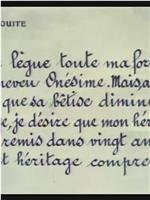 OUITE
lègue toute ma for
neveu Onésime. Mais, a
que sa bêtise diminu
e, je désire que mon hér
remis dans vingt an
et héritage compre